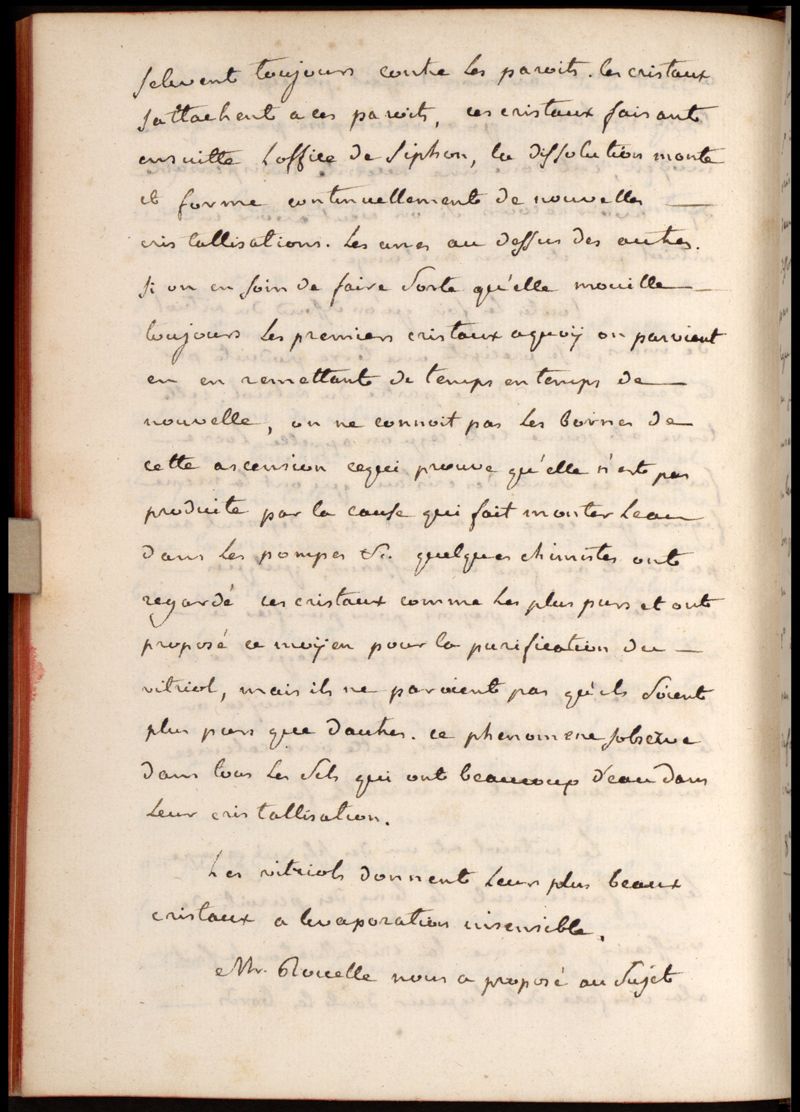 selevent toujours contre les paroits. les cristaux
sattachent a ces paroits, ces cristaux faisant
ensuitte loffice de siphon, la dissolution monte
et forme continuellement de nouvelles —
cristallisations. Les unes au dessus des autres.
si on en soin de faire sorte qu'elle mouille —
toujours les premiers cristaux aquoÿ on parvient
en en remettant de temps en temps de —
nouvelle, on ne connoit pas les bornes de —
cette ascension cequi prouve qu'elle n'est pas
produite par la cause qui fait monter leau
dans les pompes &c. quelques chimistes ont
regardé ces cristaux comme les plus purs et ont
proposé ce moÿen pour la purification du —
vitriol, mais ils ne paroient pas qu'ils soient
plus purs que dautres. ce phenomene sobserve
dans tous les sels qui ont beaucoup d'eau dans
leur cristallisation.
Les vitriols donnent leurs plus beaux
cristaux a levaporation insensible.
Mr. Rouelle nous a proposé au sujet